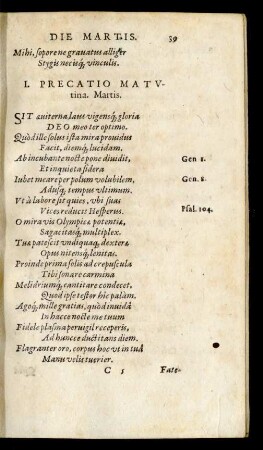 DIE MARTIS. 39
Mihi, sopore ne grauatus alliger
Stygis necisq́, vinculis.
I. PRECATIO MATV-
tina. Martis.
SIT æuiterna, laus vigensq́, gloria
DEO meo ter optimo.
Quòd ille solus ista mira prouidus
Facit, diemq́, lucidam.
Ab incubante nocte pone diuidit, Gen 1.
Et inquieta sidera
Iubet meare per polum volubilem, Gen. 8.
Adusq́, tempus vltimum.
Vt à labore sit quies, vbi suas
Vices reducit Hesperus. Psal. 104.
O mira vis Olympicæ potentiæ,
Sagacitasq́, multiplex.
Tua patescit vndiquaq́, dexteræ
Opus nitensq́, lenitas.
Proinde prima solis ad crepuscula
Tibi sonare carmina
Melidrumq́, cantitare condecet,
Quod ipse testor hic palàm.
Agoq́, mille gratias, quòd inuidâ
In hacce nocte me tuum
Fidele plasma peruigil receperis,
Ad huncce ductitans diem.
Flagranter oro, corpus hoc vt in tuâ
Manu velis tuerier.
C 5 Fate-